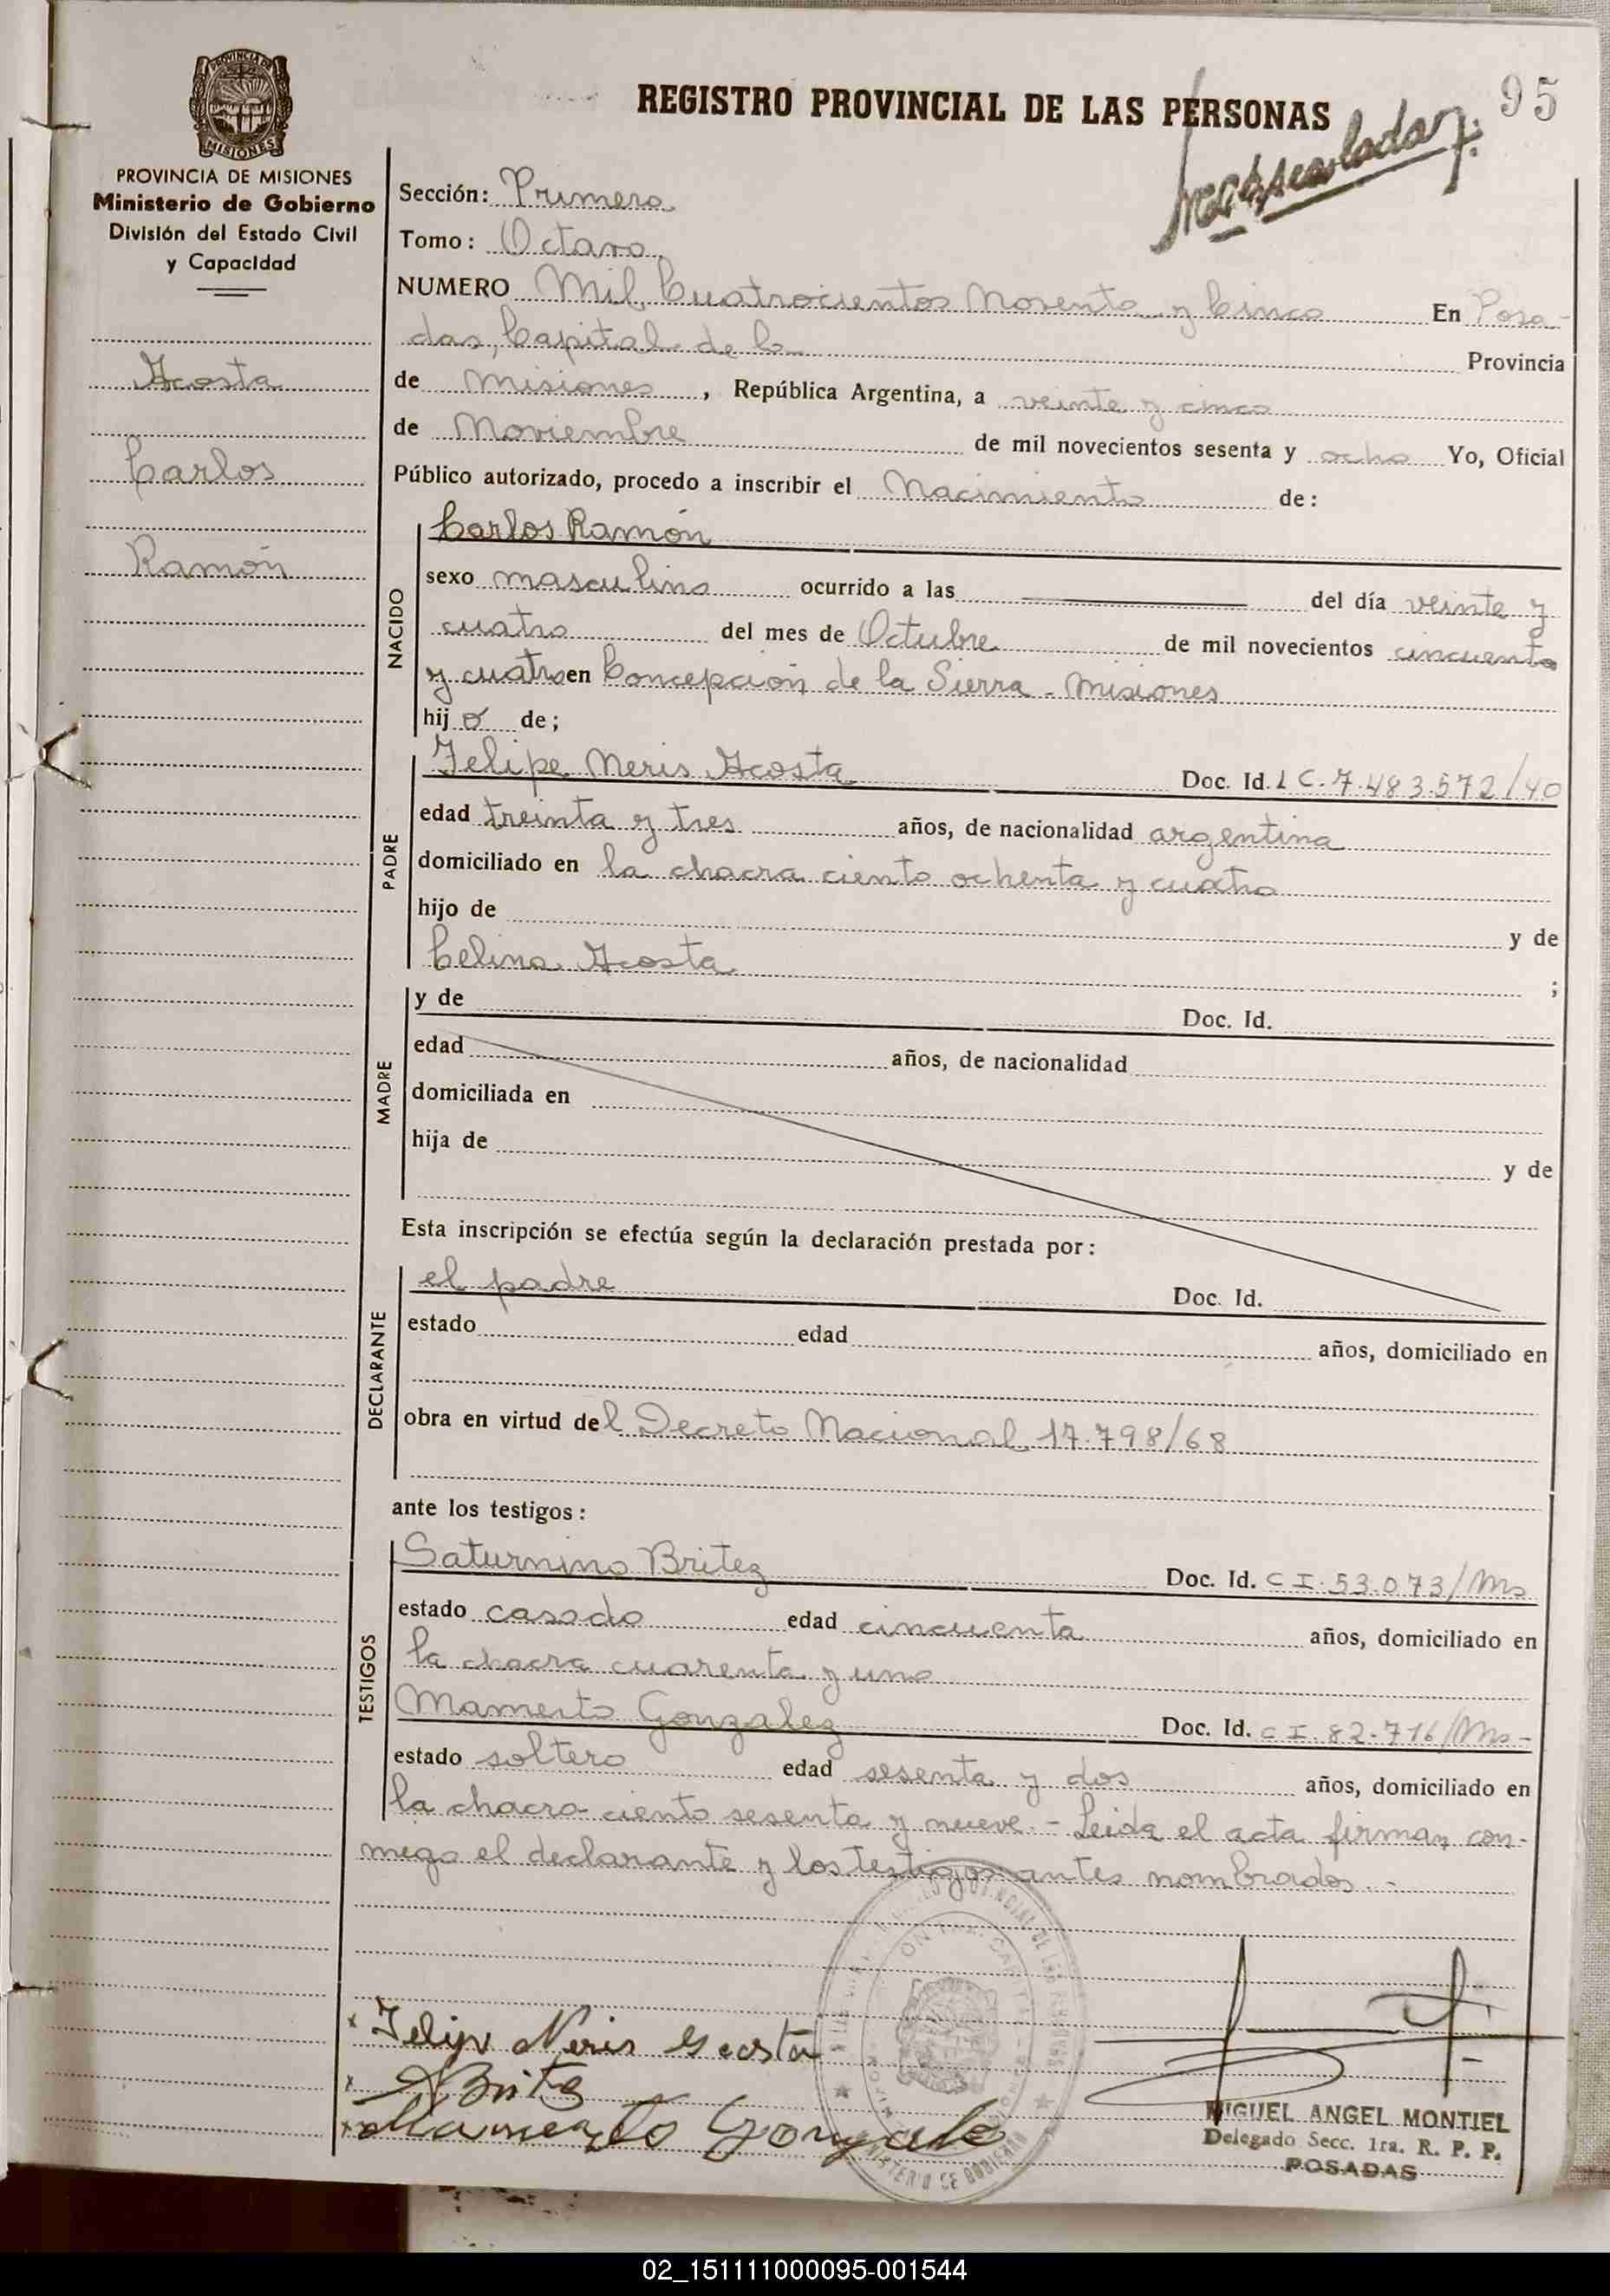 95
REGISTRO PROVINCIAL DE LAS PERSONAS
MISIONES
PROVINCIA DE MISIONES
Ministerio de Gobierno
División del Estado Civil
y Capacidad
Acosta
Carlos
Ramón
Sección: Primera
Tomo: Octavo
NUMERO Mil Cuatrocientos Noventa y Cinco En Posa-
das, Capital de la Provincia
de Misiones, República Argentina, a veinte y cinco
de Noviembre de mil novecientos sesenta y ocho Yo, Oficial
Público autorizado, procedo a inscribir el Nacimiento de:
NACIDO
Carlos Ramón
sexo masculino ocurrido a las del día veinte y
cuatro del mes de Octubre de mil novecientos cincuenta
y cuatro en Concepción de la Sierra - Misiones
hijo de;
PADRE
Felipe Neris Acosta Doc. Id. L C. 7.483.572/40
edad treinta y tres años, de nacionalidad argentina
domiciliado en la chacra ciento ochenta y cuatro
hijo de y de
Celina Acosta ;
MADRE
y de Doc. Id.
edad años, de nacionalidad
domiciliada en
hija de y de
Esta inscripción se efectúa según la declaración prestada por:
DECLARANTE
el padre Doc. Id.
estado edad años, domiciliado en
obra en virtud del Decreto Nacional 17.798/68
ante los testigos:
TESTIGOS
Saturnino Britez Doc. Id. C I. 53.073/Ms
estado casado edad cincuenta años, domiciliado en
la chacra cuarenta y uno
Mamerto Gonzalez Doc. Id. C I. 82.716/Ms-
estado soltero edad sesenta y dos años, domiciliado en
la chacra ciento sesenta y nueve.- Leida el acta firman con-
migo el declarante y los testigos antes nombrados.-
x Felipe Neris Acosta
x Britez
x Mamerto Gonzalez
MIGUEL ANGEL MONTIEL
Delegado Secc. 1ra. R. P. P.
POSADAS
02_151111000095-001544